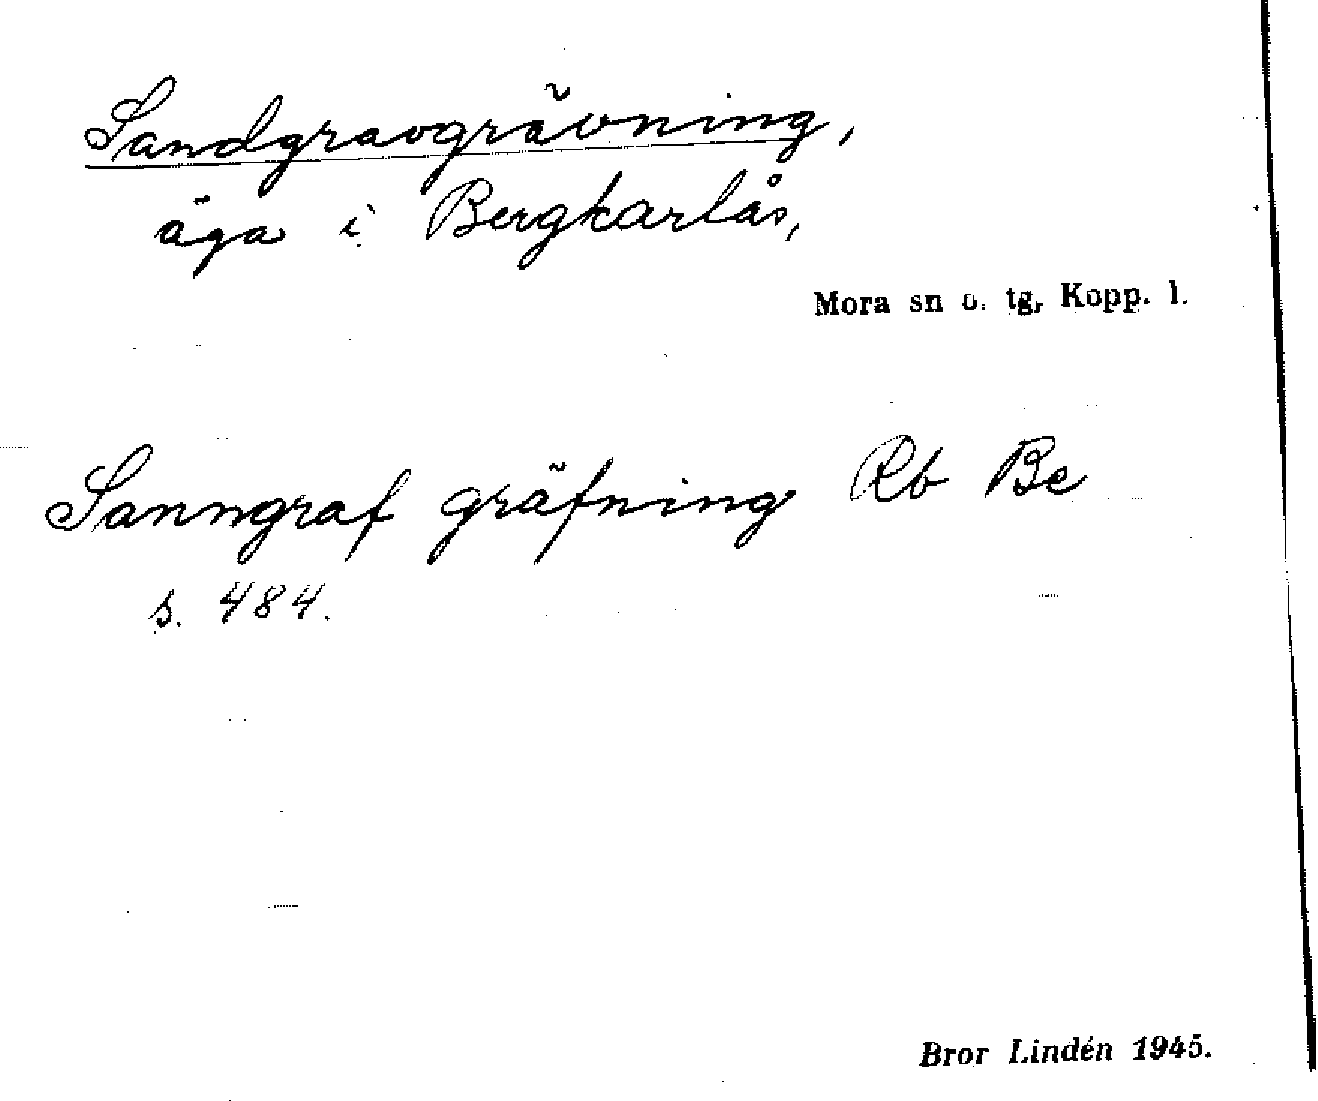 Sandgravgrävning,
äga i Bergkarlås,
Mora sn o. tg, Kopp. l.
Sanngraf gräfning Rb Be
s. 484.
Bror Lindén 1945.